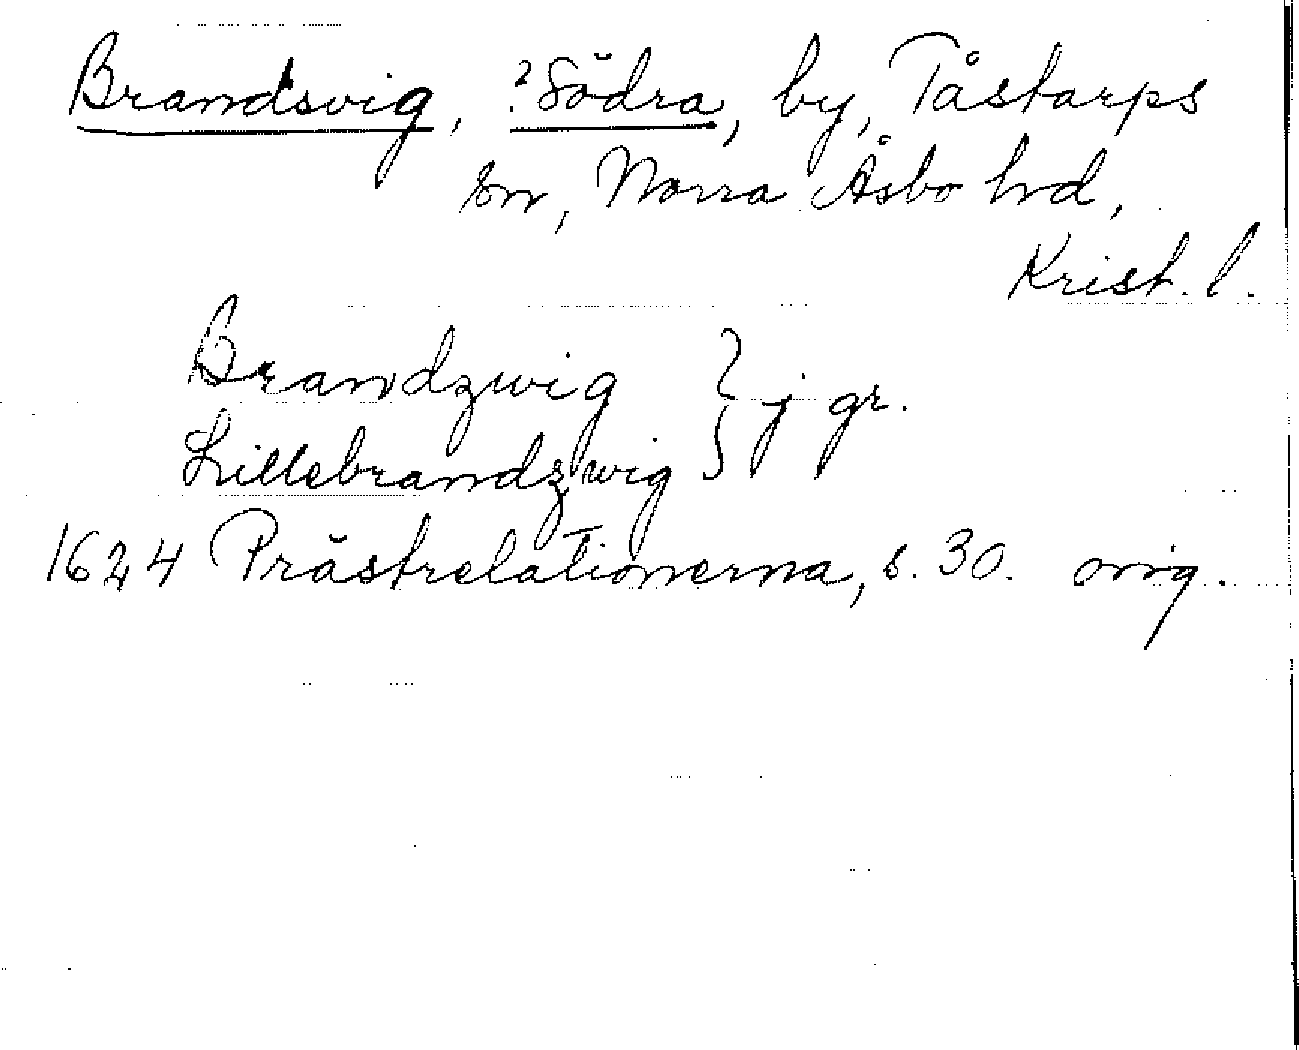 Brandsvig, ?Södra, by, Tåstarps
sn, Norra Åsbo hrd,
Krist. l.
Brandzwig } j gr.
Lillebrandzwig
1624 Prästrelationerna, s. 30. orig.